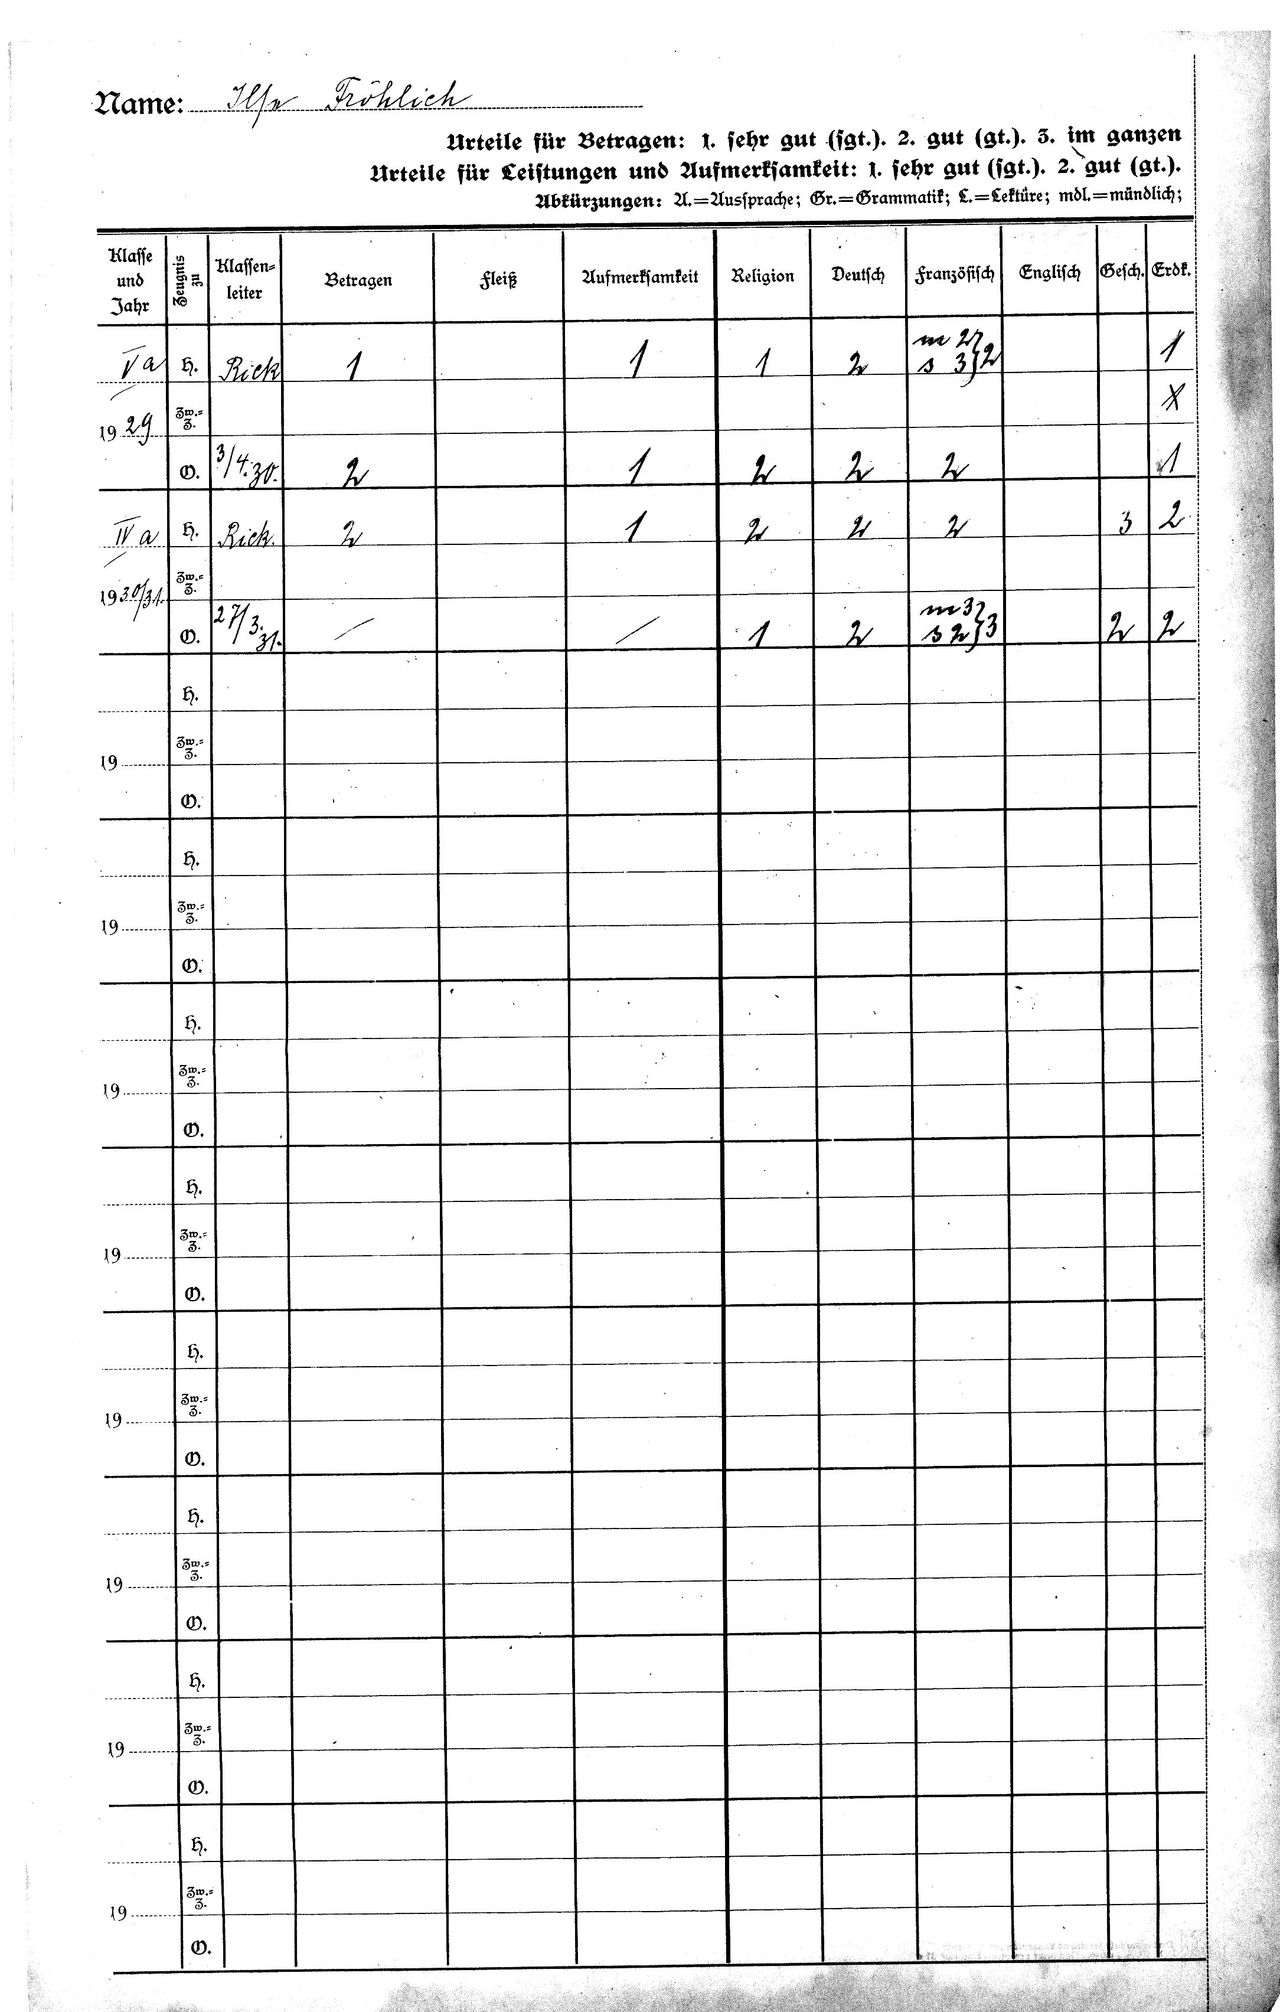 Name: Ilse Fröhlich
Urteile für Betragen: 1. sehr gut (sgt.). 2. gut (gt.). 3. im ganzen
Urteile für Leistungen und Aufmerksamkeit: 1. sehr gut (sgt.). 2. gut (gt.).
Abkürzungen: A.=Aussprache; Gr.=Grammatik; L.=Lektüre; mdl.=mündlich;
Klasse und Jahr Zeugnis zu Klassen=leiter Betragen Fleiß Aufmerksamkeit Religion Deutsch Französisch Englisch Gesch. Erdk.
Va H. Rick 1 1 1 2 m 2 s 3 } 2 1
1929 Zw.=Z.
O. 3/4.30. 2 1 2 2 2 1
IVa H. Rick. 2 1 2 2 2 3 2
1930/31. Zw.=Z.
O. 27/3.31. / / 1 2 m 3 s 2 } 3 2 2
H.
19 Zw.=Z.
O.
H.
19 Zw.=Z.
O.
H.
19 Zw.=Z.
O.
H.
19 Zw.=Z.
O.
H.
19 Zw.=Z.
O.
H.
19 Zw.=Z.
O.
H.
19 Zw.=Z.
O.
H.
19 Zw.=Z.
O.